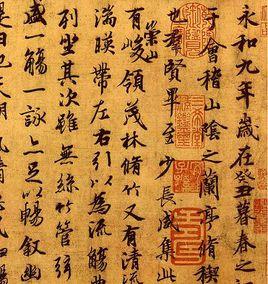 永和九年歲在癸丑暮春之
于會稽山陰之蘭亭脩稧
也羣賢畢至少長咸集此
有崇山峻領茂林脩竹又有清流
湍暎帶左右引以為流觴曲
列坐其次雖無絲竹管弦
盛一觴一詠上足以暢敘幽
是日也天朗氣清